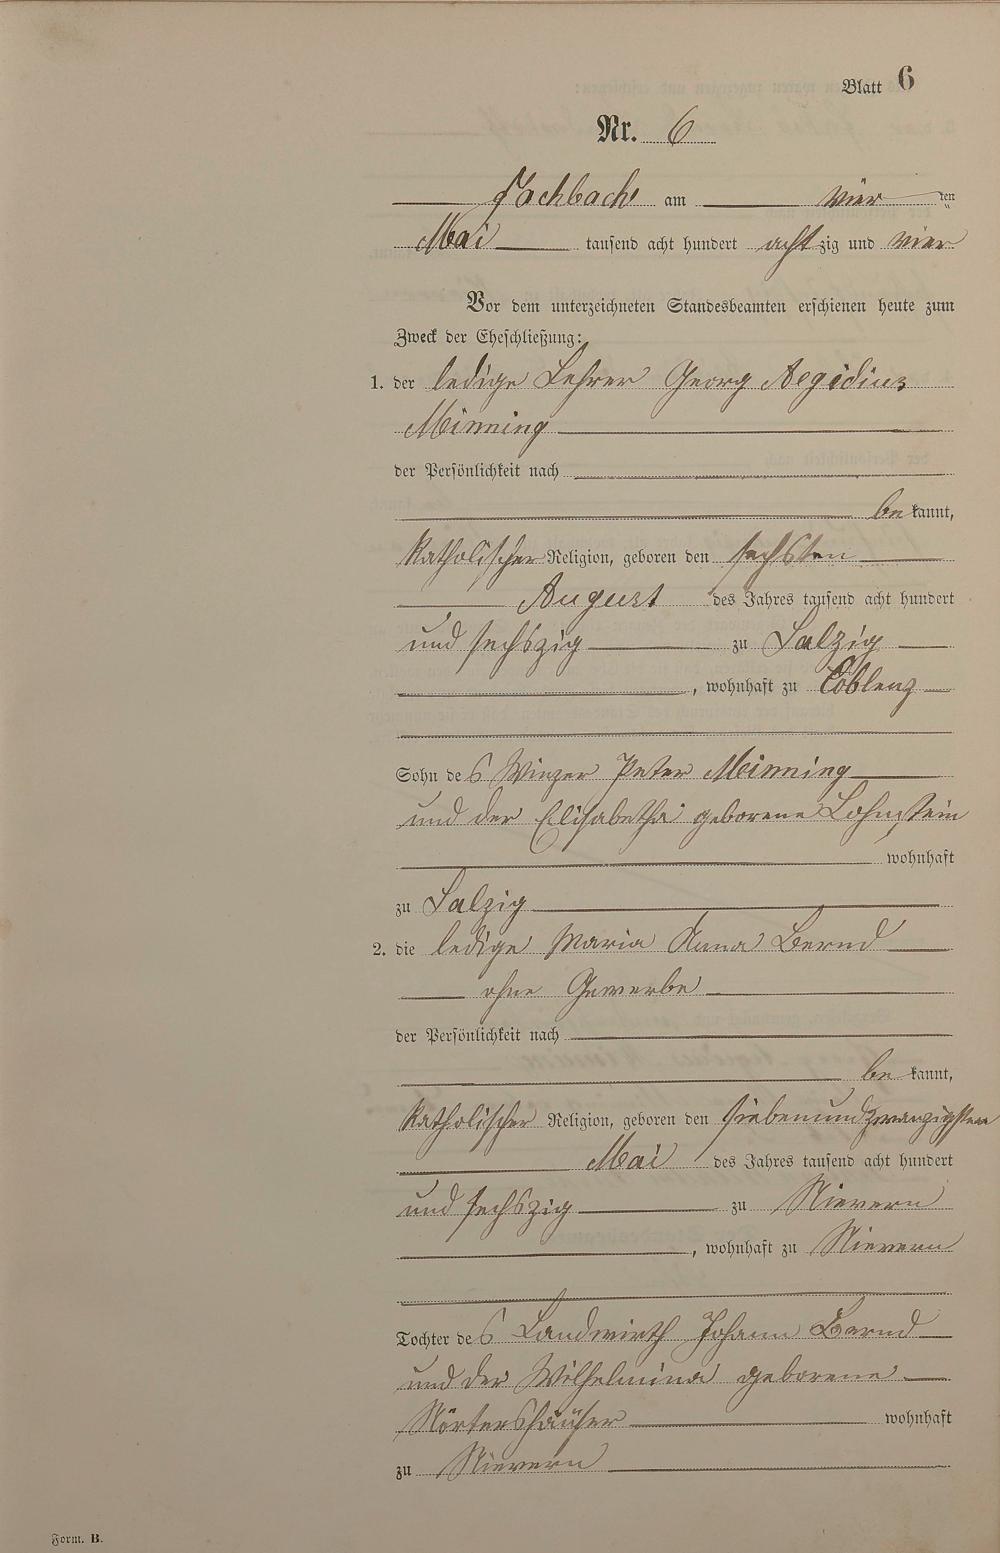 Blatt 6
Nr. 6
Fachbach am vier ten
Mai tausend acht hundert achtzig und vier
Vor dem unterzeichneten Standesbeamten erschienen heute zum
Zweck der Eheschließung:
1. der ledige Lehrer Georg Aegidius
Minning
der Persönlichkeit nach
bekannt,
katholischer Religion, geboren den sechsten
August des Jahres tausend acht hundert
und sechszig zu Salzig
, wohnhaft zu Coblenz
Sohn des Winzer Peter Minning
und der Elisabetha geborene Lohnstein
wohnhaft
zu Salzig
2. die ledige Maria Anna Bernd
ohne Gewerbe
der Persönlichkeit nach
bekannt,
katholischer Religion, geboren den siebenundzwanzigsten
Mai des Jahres tausend acht hundert
und sechszig zu Nievern
, wohnhaft zu Nievern
Tochter des Landwirth Johann Bernd
und der Wilhelmina geborene
Nörtershäuser wohnhaft
zu Nievern
Form. B.